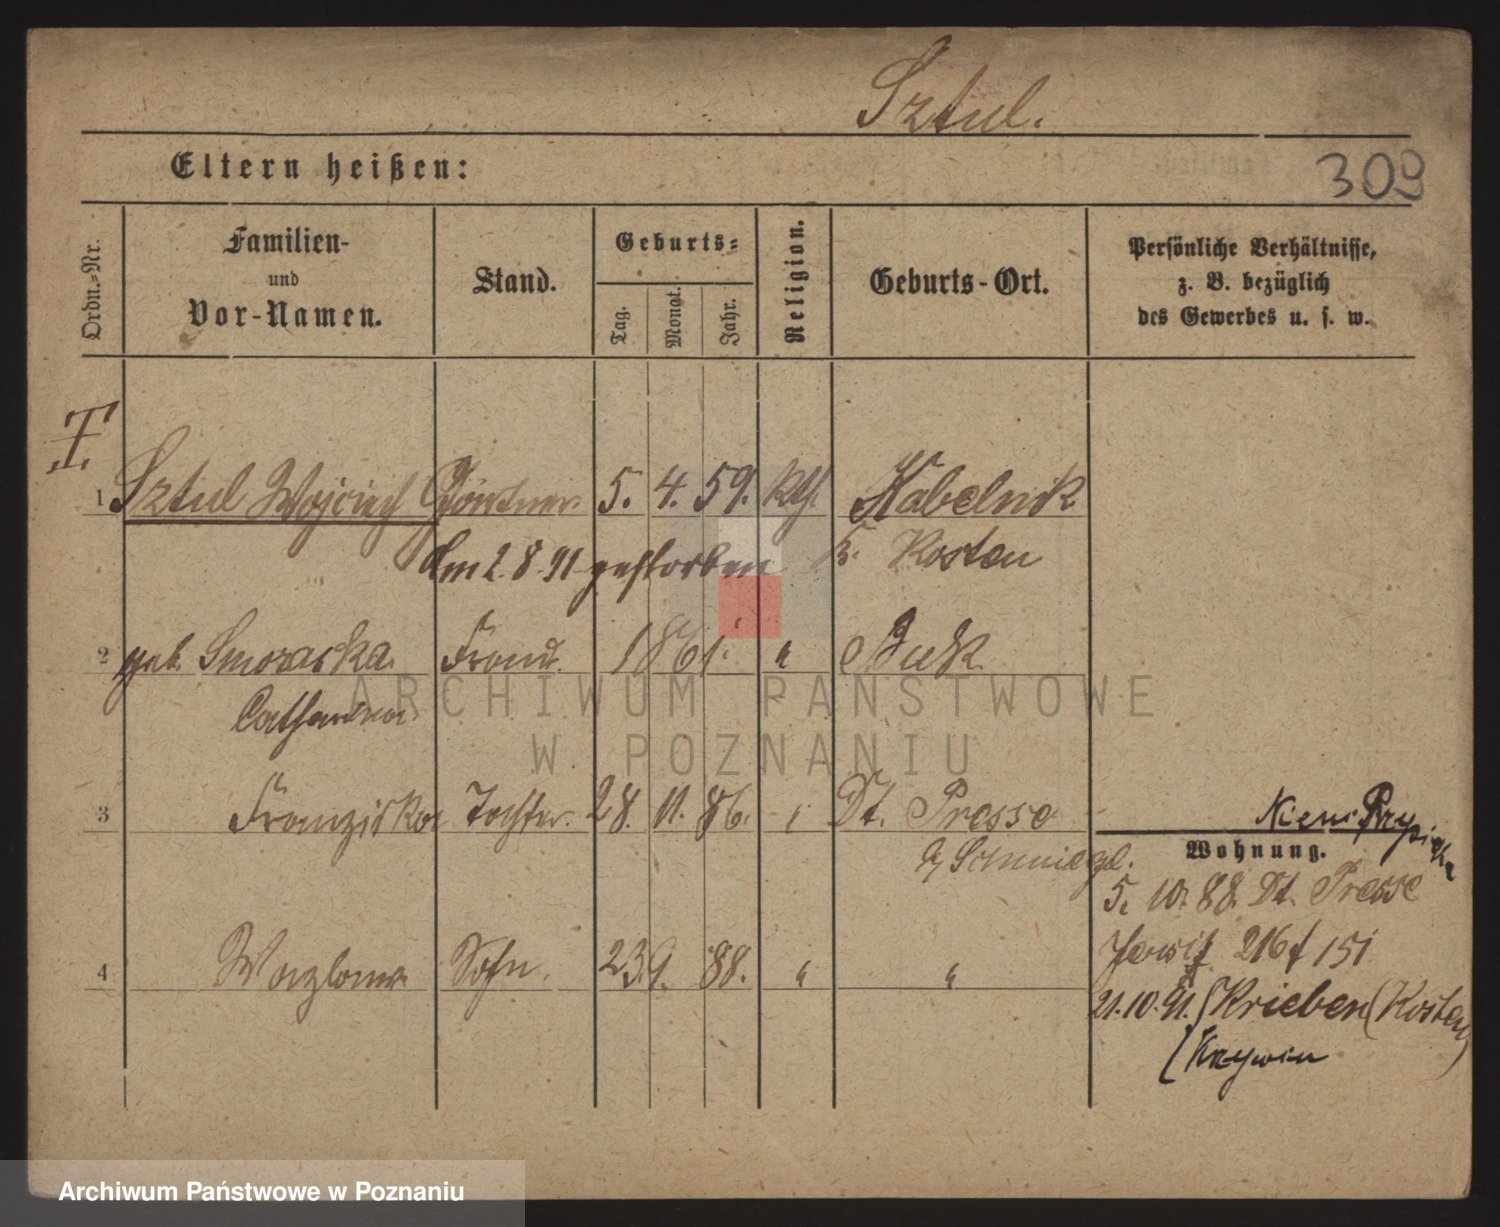 Sztul.
Eltern heißen:
309
Ordn.-Nr.
Familien-
und
Vor-Namen.
Stand.
Geburts-
Tag.
Monat.
Jahr.
Religion.
Geburts-Ort.
Persönliche Verhältnisse,
z. B. bezüglich
des Gewerbes u. s. w.
1 Sztul Wojciech Gärtner. 5. 4. 59. kth.
Am 2. 8. 91 gestorben Kosten
2 geb. Smorarka Frau. 1861. " Buk
Catharina
3 Franziska Tochter. 28. 11. 86. Dt. Presse
Schmiegel.
4 Sohn. 23 9. 88. " "
Wohnung.
5. 10. 88. Dt. Presse
21.10.91. Krieben (Kosten)
Krzywin
ARCHIWUM PAŃSTWOWE
W POZNANIU
Archiwum Państwowe w Poznaniu